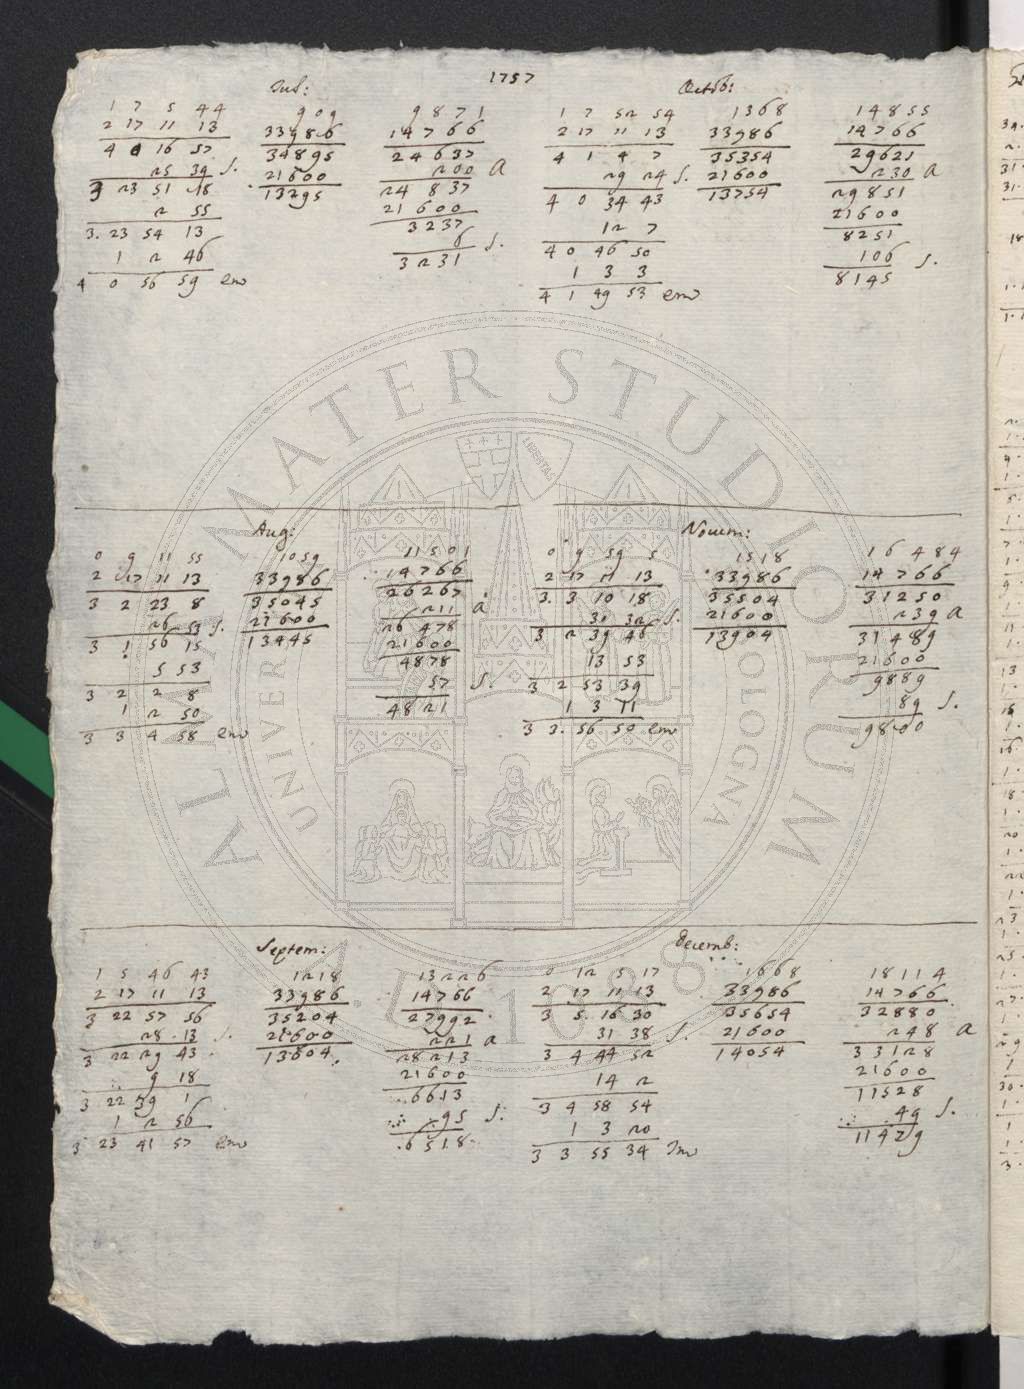 1757
Iul:
1 7 5 44
2 17 11 13
4 0 16 57
25 39 S.
3 23 51 18
2 55
3. 23 54 13
1 2 46
4 0 56 59 em
909
33986
34895
21600
13295
9871
14766
24637
200 A
24 837
21600
3237
6 S.
3231
Octob:
1 7 52 54
2 17 11 13
4 1 4 7
29 24 S.
4 0 34 43
12 7
4 0 46 50
1 3 3
4 1 49 53 em
1368
33986
35354
21600
13754
14855
14766
29621
230 A
29851
21600
8251
106 S.
8145
Aug:
0 9 11 55
2 17 11 13
3 2 23 8
26 53 S.
3 1 56 15
5 53
3 2 2 8
1 2 50
3 3 4 58 em
1059
33986
35045
21600
13445
11501
14766
26267
211 a
26 478
21600
4878
57 S.
4821
Nouem:
0 9 59 5
2 17 11 13
3. 3 10 18
31 32 S.
3 2 39 46
13 53
3 2 53 39
1 3 11
3 3. 56 50 em
1518
33986
35504
21600
13904
16484
14766
31250
239 a
31489
21600
9889
89 S.
9800
Septem:
1 5 46 43
2 17 11 13
3 22 57 56
28 13 S.
3 22 29 43
9 18
3 22 39 1
1 2 56
3 23 41 57 em
1218
33986
35204
21600
13604
13226
14766
27992
221 a
28213
21600
6613
95 S.
6518
Decemb:
0 12 5 17
2 17 11 13
3 5 16 30
31 38 S.
3 4 44 52
14 2
3 4 58 54
1 3 20
3 3 55 34 Im
1668
33986
35654
21600
14054
18114
14766
32880
248 a
33128
21600
11528
49 S.
11429
ALMA MATER STUDIORUM
UNIVER BOLOGNA
LIBERTAS
A.D. 1088